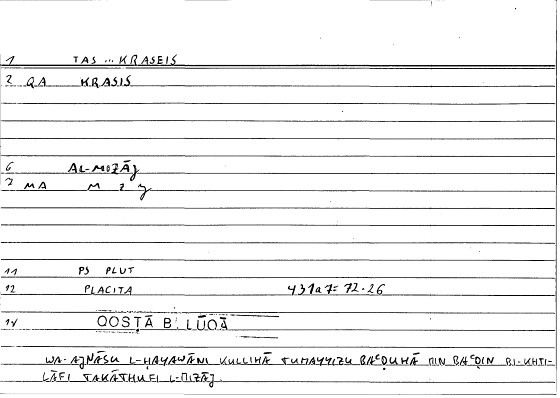 1 TAS ... KRASEIS
2 QA KRASIS
6 AL-MOZĀJ
7 MA M Z J
11 PS PLUT
12 PLACITA 431a7 = 72.26
14 QOSṬĀ B. LŪQĀ
WA-AJNĀSU L-ḤAYAWĀNI KULLIHĀ TUMAYYIZU BAʿḌUHĀ MIN BAʿḌIN BI-KHTI-
LĀFI TAKĀTHUFI L-MIZĀJ.